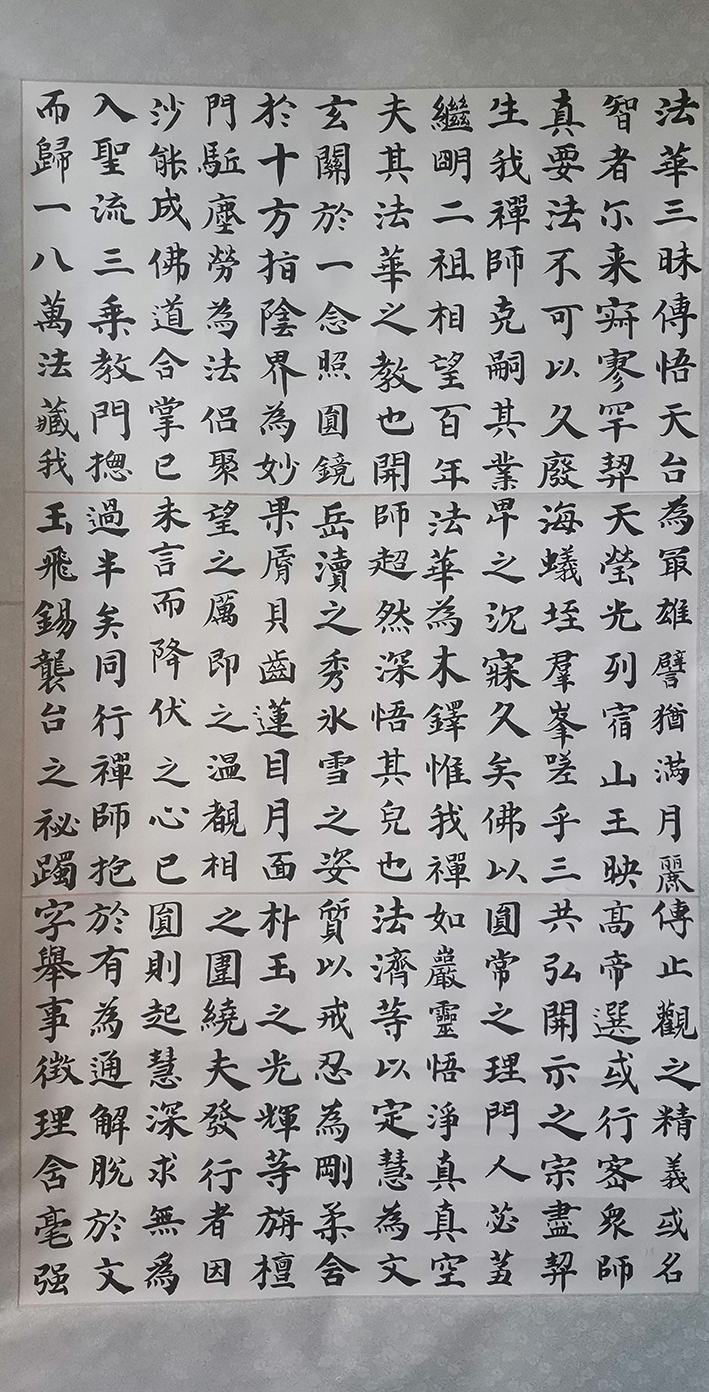 法華三昧傳悟天台
智者尒来寂寥罕契
真要法不可以久廢
生我禪師克嗣其業
繼明二祖相望百年
夫其法華之教也開
玄關於一念照圓鏡
於十方指陰界為妙
門駈塵勞為法侶聚
沙能成佛道合掌已
入聖流三乘教門揔
而歸一八萬法藏我
為冣雄譬猶滿月麗
天瑩光列宿山王映
海蟻垤羣峯嗟乎三
畀之沉寐久矣佛以
法華為木鐸惟我禪
師超然深悟其皃也
岳瀆之秀冰雪之姿
果脣貝齒蓮目月面
望之厲即之温覩相
未言而降伏之心已
過半矣同行禪師抱
玉飛錫襲台之祕躅
傳止觀之精義或名
高帝選或行密眾師
共弘開示之宗盡契
圓常之理門人苾蒭
如巖靈悟淨真真空
法濟等以定慧為文
質以戒忍為剛柔含
朴玉之光輝等旃檀
之圍繞夫發行者因
圓則起慧深求無為
於有為通解脫於文
字舉事徵理含毫强